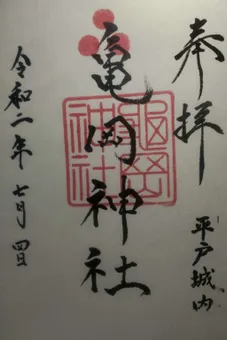 奉拝
平戸城内
亀岡神社
亀岡神社
令和二年七月四日